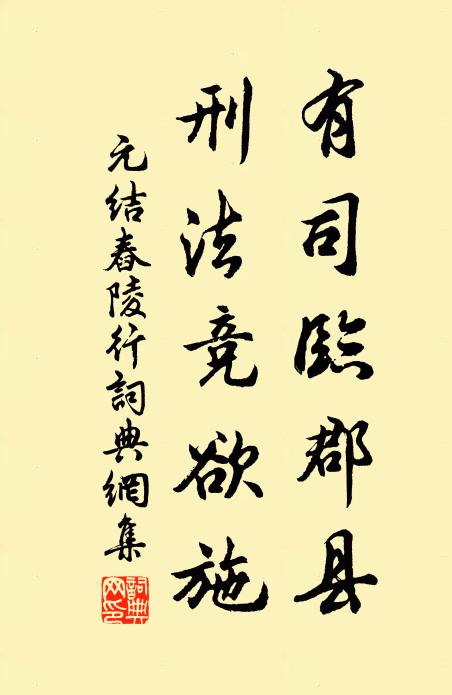 有司臨郡县
刑法竞欲施
元结舂陵行詞典網集
詞典网印